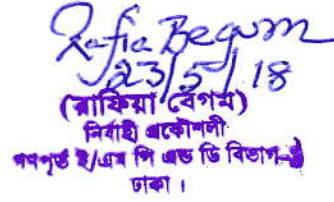 Rafia Begum
23/5/18
(রাফিয়া বেগম)
নির্বাহী প্রকৌশলী
গণপূর্ত ই/এম পি এন্ড ডি বিভাগ-
ঢাকা ।